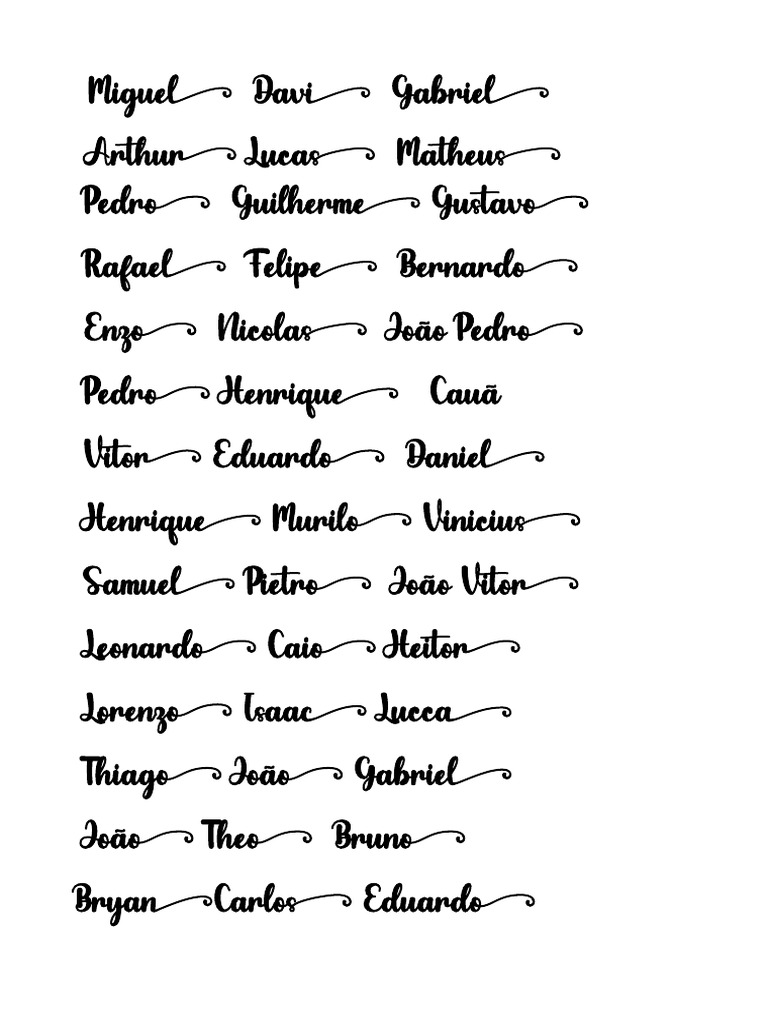 Miguel Davi Gabriel
Arthur Lucas Matheus
Pedro Guilherme Gustavo
Rafael Felipe Bernardo
Enzo Nicolas João Pedro
Pedro Henrique Cauã
Vitor Eduardo Daniel
Henrique Murilo Vinicius
Samuel Pietro João Vitor
Leonardo Caio Heitor
Lorenzo Isaac Lucca
Thiago João Gabriel
João Theo Bruno
Bryan Carlos Eduardo